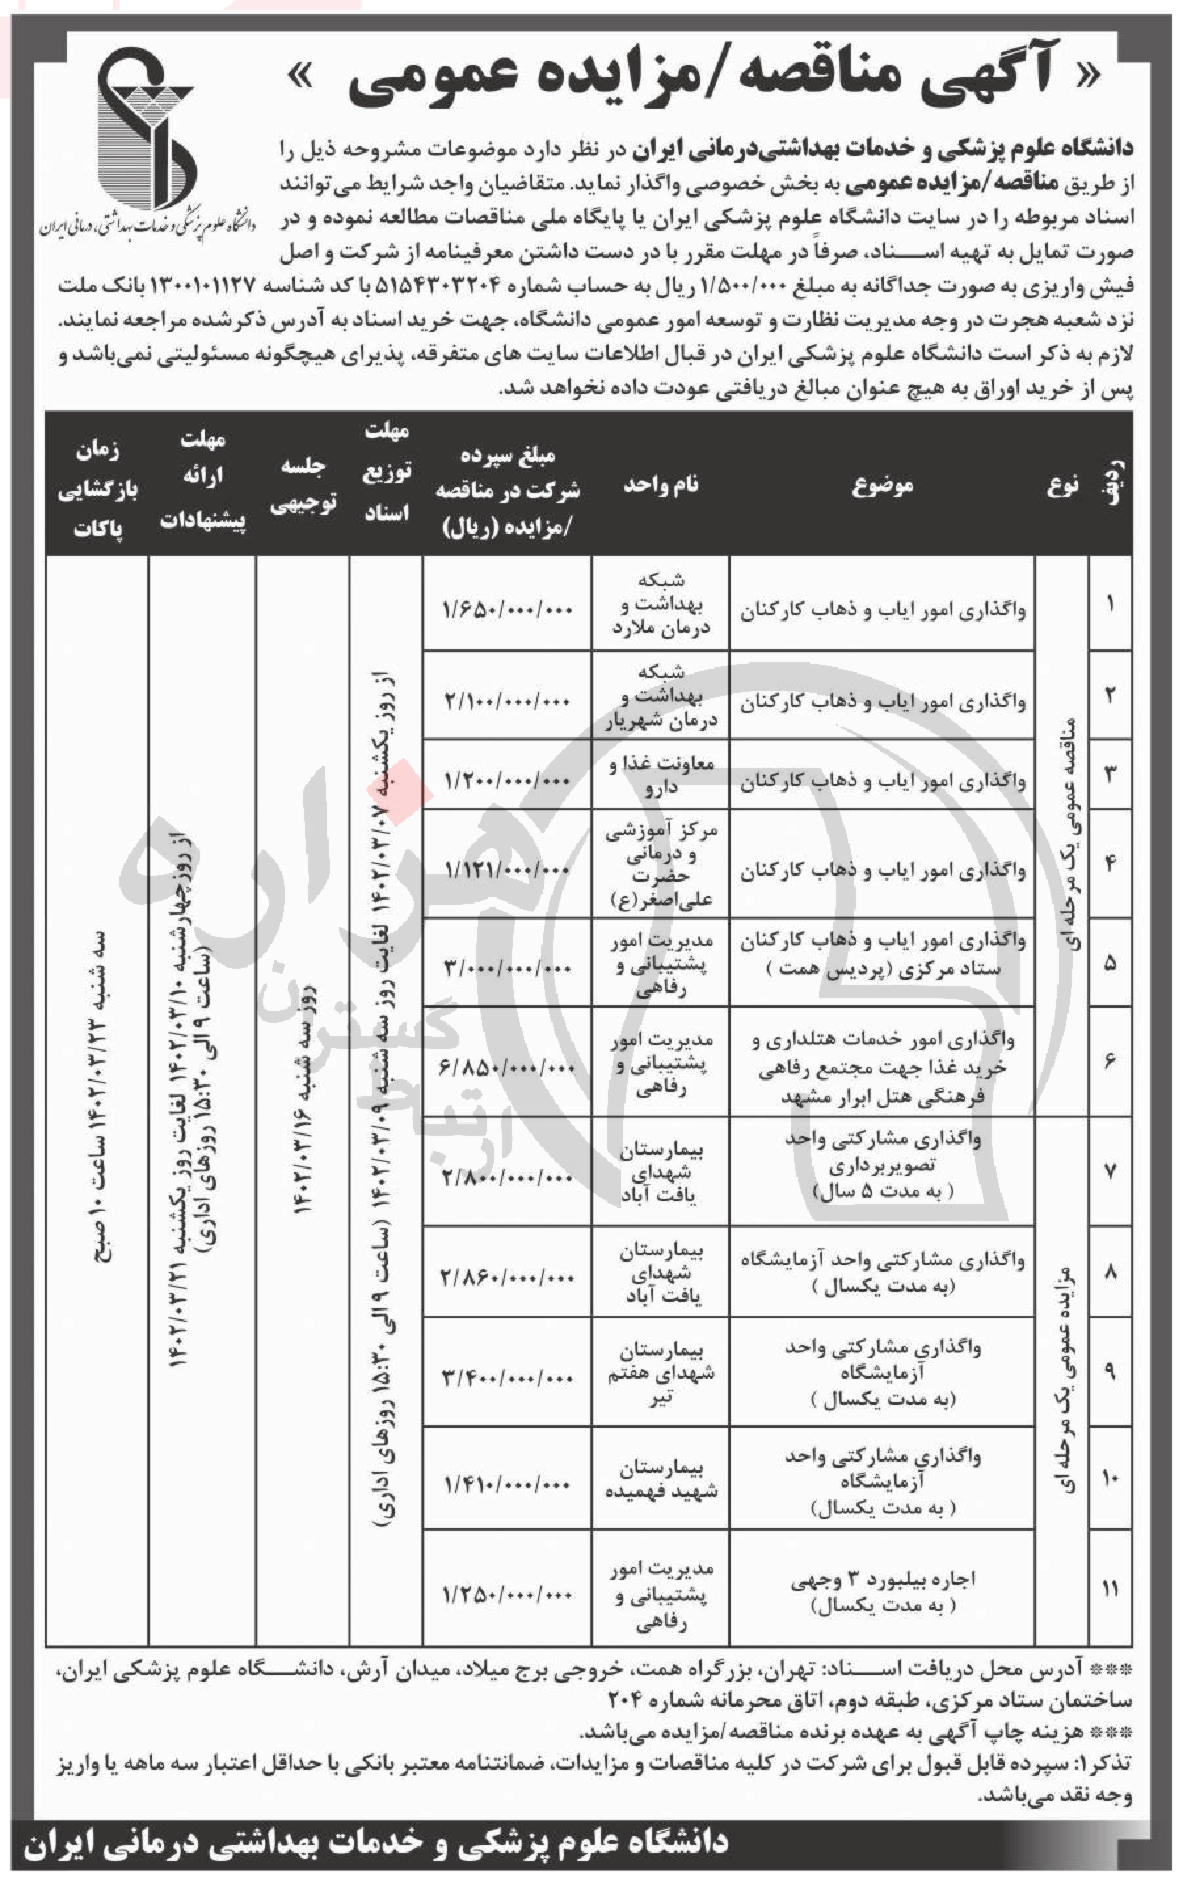 « آگهی مناقصه/مزایده عمومی »
دانشگاه علوم پزشکی و خدمات بهداشتی، درمانی ایران
دانشگاه علوم پزشکی و خدمات بهداشتی‌درمانی ایران در نظر دارد موضوعات مشروحه ذیل را
از طریق مناقصه/مزایده عمومی به بخش خصوصی واگذار نماید. متقاضیان واجد شرایط می‌توانند
اسناد مربوطه را در سایت دانشگاه علوم پزشکی ایران یا پایگاه ملی مناقصات مطالعه نموده و در
صورت تمایل به تهیه اسـناد، صرفاً در مهلت مقرر با در دست داشتن معرفینامه از شرکت و اصل
فیش واریزی به صورت جداگانه به مبلغ ۱/۵۰۰/۰۰۰ ریال به حساب شماره ۵۱۵۴۳۰۳۲۰۴ با کد شناسه ۱۳۰۰۱۰۱۱۲۷ بانک ملت
نزد شعبه هجرت در وجه مدیریت نظارت و توسعه امور عمومی دانشگاه، جهت خرید اسناد به آدرس ذکرشده مراجعه نمایند.
لازم به ذکر است دانشگاه علوم پزشکی ایران در قبال اطلاعات سایت های متفرقه، پذیرای هیچگونه مسئولیتی نمی‌باشد و
پس از خرید اوراق به هیچ عنوان مبالغ دریافتی عودت داده نخواهد شد.
ردیف
نوع
موضوع
نام واحد
مبلغ سپرده
شرکت در مناقصه
/مزایده (ریال)
مهلت
توزیع
اسناد
جلسه
توجیهی
مهلت
ارائه
پیشنهادات
زمان
بازگشایی
پاکات
مناقصه عمومی یک مرحله ای
۱
واگذاری امور ایاب و ذهاب کارکنان
شبکه
بهداشت و
درمان ملارد
۱/۶۵۰/۰۰۰/۰۰۰
۲
واگذاری امور ایاب و ذهاب کارکنان
شبکه
بهداشت و
درمان شهریار
۲/۱۰۰/۰۰۰/۰۰۰
۳
واگذاری امور ایاب و ذهاب کارکنان
معاونت غذا و
دارو
۱/۲۰۰/۰۰۰/۰۰۰
۴
واگذاری امور ایاب و ذهاب کارکنان
مرکز آموزشی
و درمانی
حضرت
علی‌اصغر(ع)
۱/۱۲۱/۰۰۰/۰۰۰
۵
واگذاری امور ایاب و ذهاب کارکنان
ستاد مرکزی (پردیس همت )
مدیریت امور
پشتیبانی و
رفاهی
۳/۰۰۰/۰۰۰/۰۰۰
۶
واگذاری امور خدمات هتلداری و
خرید غذا جهت مجتمع رفاهی
فرهنگی هتل ابرار مشهد
مدیریت امور
پشتیبانی و
رفاهی
۶/۸۵۰/۰۰۰/۰۰۰
مزایده عمومی یک مرحله ای
۷
واگذاری مشارکتی واحد
تصویربرداری
( به مدت ۵ سال)
بیمارستان
شهدای
یافت آباد
۲/۸۰۰/۰۰۰/۰۰۰
۸
واگذاری مشارکتی واحد آزمایشگاه
(به مدت یکسال )
بیمارستان
شهدای
یافت آباد
۲/۸۶۰/۰۰۰/۰۰۰
۹
واگذاری مشارکتی واحد
آزمایشگاه
(به مدت یکسال )
بیمارستان
شهدای هفتم
تیر
۳/۴۰۰/۰۰۰/۰۰۰
۱۰
واگذاری مشارکتی واحد
آزمایشگاه
( به مدت یکسال)
بیمارستان
شهید فهمیده
۱/۴۱۰/۰۰۰/۰۰۰
۱۱
اجاره بیلبورد ۳ وجهی
( به مدت یکسال)
مدیریت امور
پشتیبانی و
رفاهی
۱/۲۵۰/۰۰۰/۰۰۰
از روز یکشنبه ۱۴۰۲/۰۳/۰۷ لغایت روز سه شنبه ۱۴۰۲/۰۳/۰۹ (ساعت ۹ الی ۱۵:۳۰ روزهای اداری)
روز سه شنبه ۱۴۰۲/۰۳/۱۶
از روز چهارشنبه ۱۴۰۲/۰۳/۱۰ لغایت روز یکشنبه ۱۴۰۲/۰۳/۲۱
(ساعت ۹ الی ۱۵:۳۰ روزهای اداری)
سه شنبه ۱۴۰۲/۰۳/۲۳ ساعت ۱۰ صبح
هزاره
گستران
ارتباط
*** آدرس محل دریافت اسـناد: تهران، بزرگراه همت، خروجی برج میلاد، میدان آرش، دانشـگاه علوم پزشکی ایران،
ساختمان ستاد مرکزی، طبقه دوم، اتاق محرمانه شماره ۲۰۴
*** هزینه چاپ آگهی به عهده برنده مناقصه/مزایده می‌باشد.
تذکر۱: سپرده قابل قبول برای شرکت در کلیه مناقصات و مزایدات، ضمانتنامه معتبر بانکی با حداقل اعتبار سه ماهه یا واریز
وجه نقد می‌باشد.
دانشگاه علوم پزشکی و خدمات بهداشتی درمانی ایران